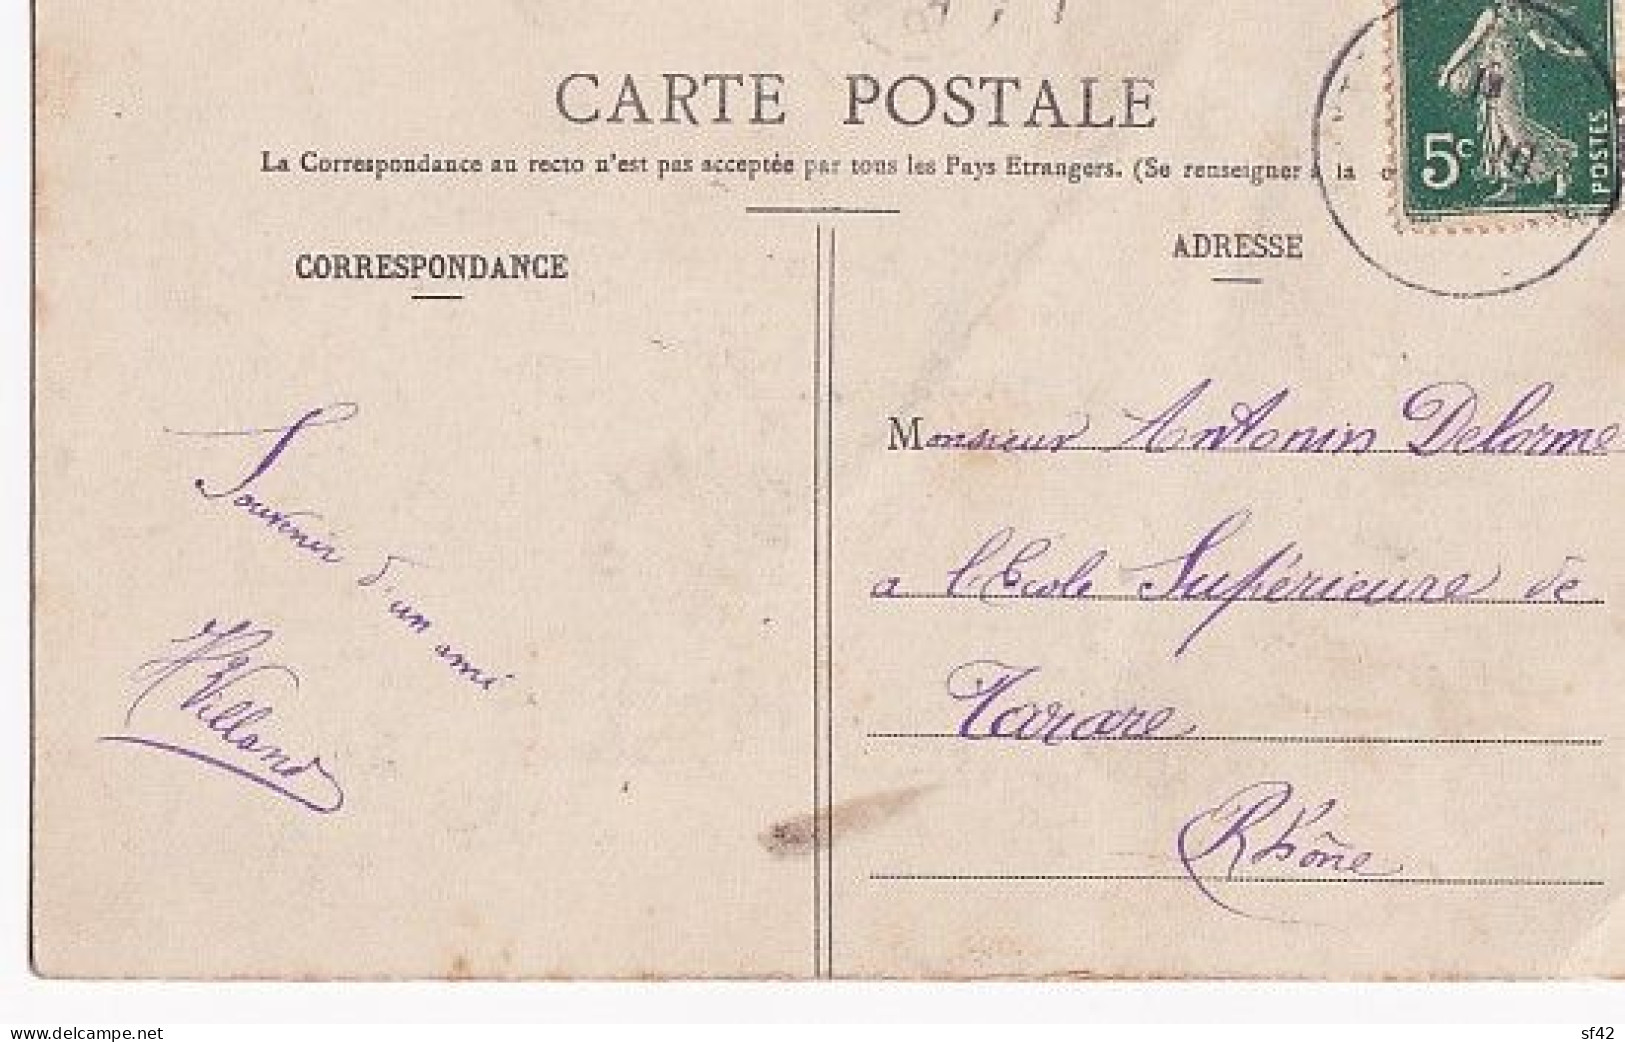 CARTE POSTALE
La Correspondance au recto n'est pas acceptée par tous les Pays Etrangers. (Se renseigner à la
5c
POSTES
CORRESPONDANCE
ADRESSE
Souvenir d'un ami
Villand
Monsieur Antonin Delorme
a l'Ecole Supérieure de
Tarare
Rhône
www.delcampe.net
sf42